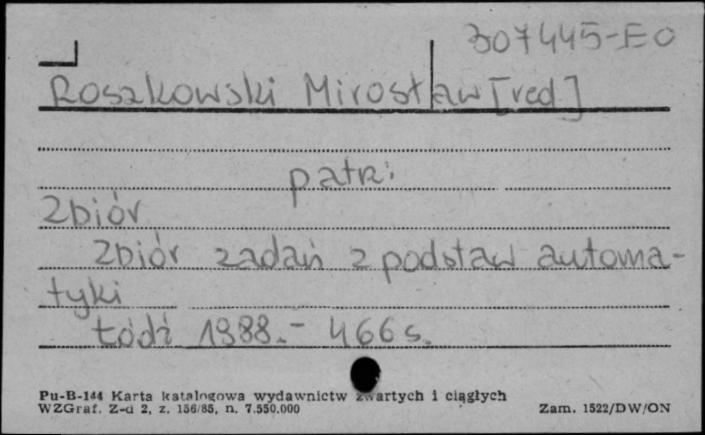 307445-EO
Roszkowski Mirosław [red]
patrz:
Zbiór
Zbiór zadań z podstaw automa-
tyki
Łódź 1988.- 466 s.
Pu-B-144 Karta katalogowa wydawnictw zwartych i ciągłych
WZGraf. Z-d 2, z. 156/85, n. 7.550.000
Zam. 1522/DW/ON